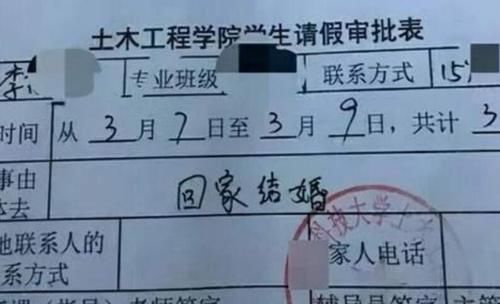 土木工程学院学生请假审批表
李 专业班级 联系方式 15
时间 从 3 月 7 日至 3 月 9 日，共计 3
事由 回家结婚
体去
科技大学土
地联系人的 家人电话
系方式